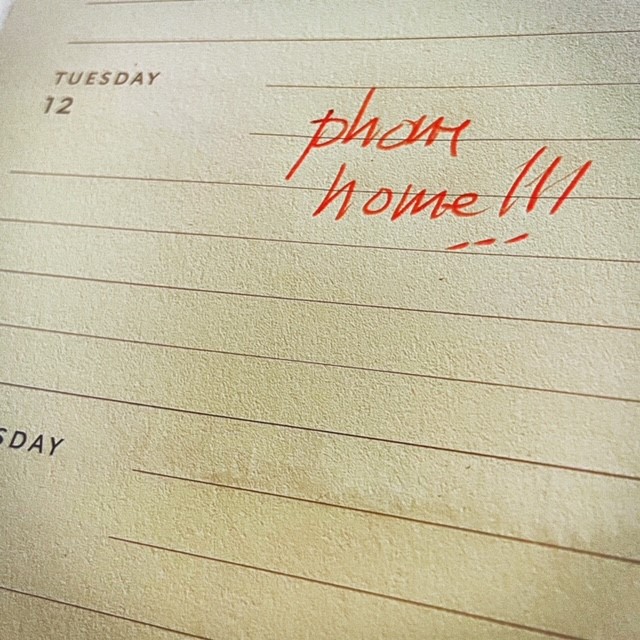 TUESDAY
12
phone
home!!!
SDAY